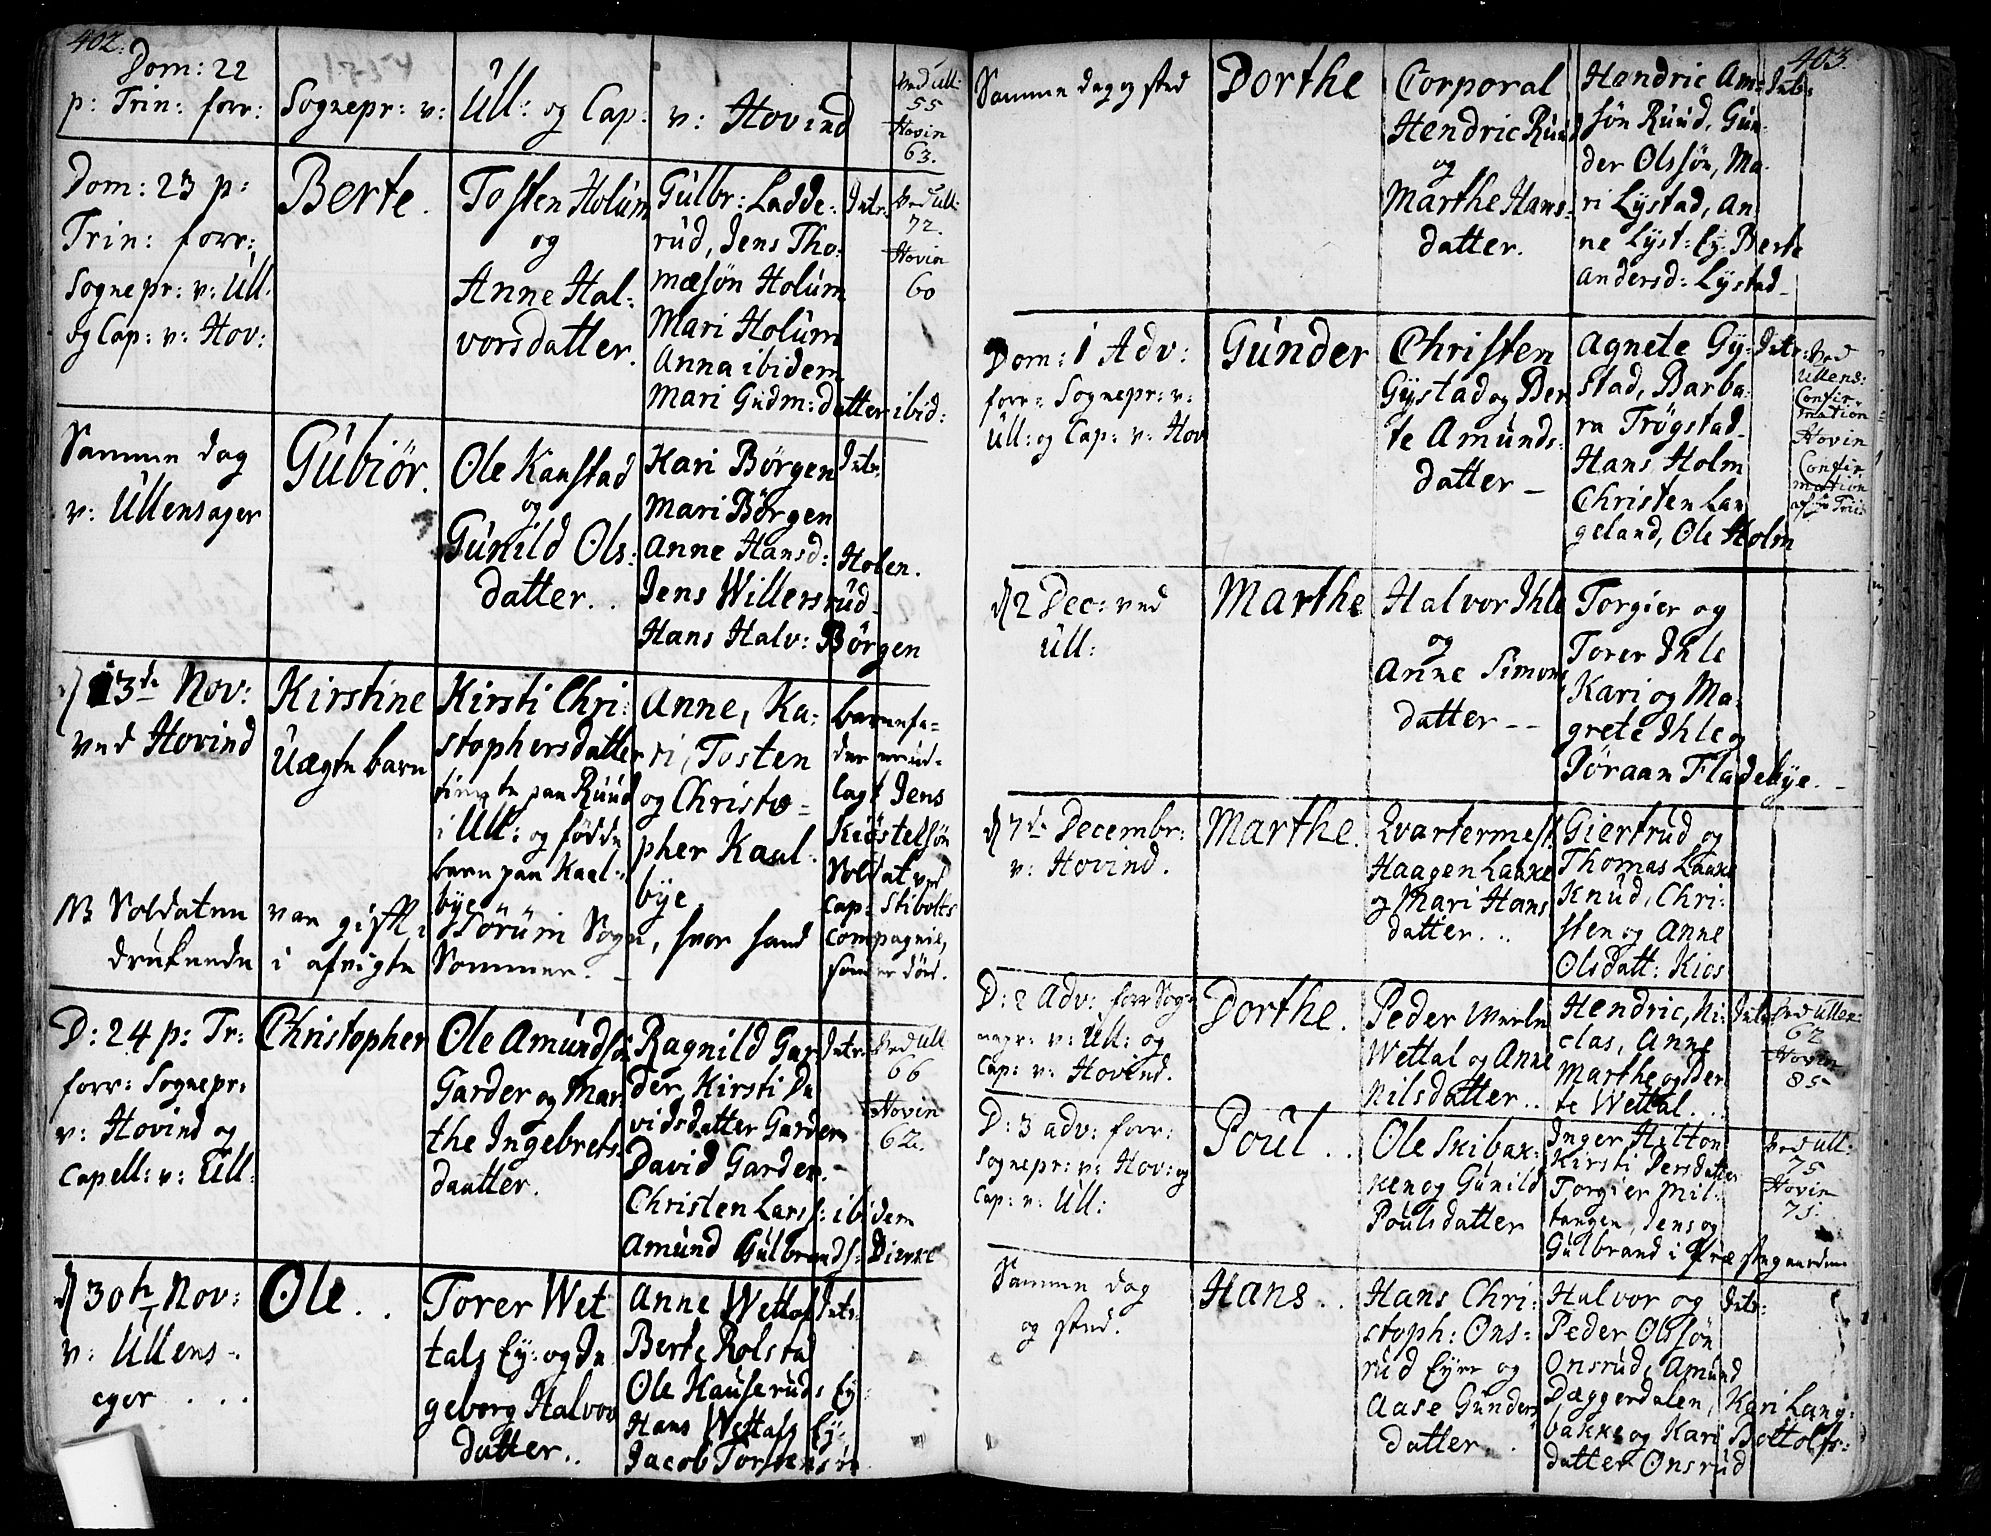 402.
Dom: 22
p: Trin: forr:
Sognepr: v:
Ull: og Cap:
v: Hovind
Ved Ull:
55
Hovin
63.
Dom: 23 p:
Trin: forr:
Sognepr: v: Ull.
og Cap: v: Hov:
Berte.
Tosten Holum
og
Anne Hal:
vorsdatter.
Gulbr: Ladde:
rud, Jens Tho:
mæsøn Holum
Mari Holum
Anna ibidem
Mari Gudm: datter ibid:
Intr:
Ved Ull:
72.
Hovin
60
Samme dag
v: Ullensager
Gubiør.
Ole Kaustad
og
Gunild Ols:
datter.
Kari Børgen
Mari Børgen
Anne Hansd: Holen.
Jens Willersrud
Hans Halv: Børgen
Intr.
d 13de Nov:
ved Hovind
Kirstine
Uægte barn
Kirsti Chri:
stophersdatter
tiente paa Ruud
i Ull: og fødde
barn paa Kaal:
bye
Anne, Ka:
ri, Tosten
og Christo=
pher Kaal:
bye
barnefa=
der er ud=
lagt Jens
Kiøstelsøn
Soldat ved
Cap: Stibolts
Compagnie,
som er død.
NB Soldaten var gift i Sørum Sogn, hvor hand
druknede i afvigte Sommer.
D: 24 p: Tr:
forr: Sognepr:
v: Hovind og
Capell: v: Ull:
Christopher
Ole Amundsøn
Garder og Mar
the Ingebrets:
daatter.
Ragnild Gar
der, Kirsti Da
vidsdatter Garder
David Garder.
Christen Larss: ibidem
Amund Gulbrands: Dirvke
Intr.
Ved Ull
66
Hovin
62.
d 30te Nov:
v: Ullens-
ager . . . .
Ole . .
Torer Wet
tals Ey: og In
geborg Halvor
datter..
Anne Wettal
Berte Rolstad
Ole Hauseruds Ey:
Hans Wettals Ey:
Jacob Torstensøn
Intr:
403.
Samme dag og sted
Dorthe
Corporal
Hendric Ruud
og
Marthe Hans=
datter.
Hendric Am=
søn Ruud, Gun
der Olssøn, Ma:
ri Lystad, An
ne Lyst: Ey: Berte
Andersd: Lystad
Intr:
Dom: 1 Adv:
forr: Sognepr: v:
Ull: og Cap: v: Hov
Gunder
Christen
Gystad og Ber
te Amunds:
datter
Agnete Gy:
stad, Barba:
ra Trøgstad
Hans Holm
Christen Lan
geland, Ole Holm
Intr:
Ved
Ullens:
Confir
mation
Hovin
Confir
mation
d 2 Dec: ved
Ull:
Marthe
Halvor Ihle
og
Anne Simons
datter
Torgier og
Torer Ihle
Kari og Ma:
grete Ihle og
Pøraan Fladebye.
d 7de Decembr:
v: Hovind.
Marthe.
Qvartermest.
Haagen Laake
og Mari Hans
datter.
Giertrud og
Thomas Laake
Knud, Chri:
sten og Anne
Olsdatt: Kios
D: 2 Adv: forr Sog=
nepr: v: Ull: og
Cap: v: Hovind.
Dorthe.
Peder Werle
Wettal og Anne
Nilsdatter..
Hendric, Ni:
clas, Anne
Marthe og Ber
te Wettal.
Intr
Ved Ullen:
62
Hovin
85
D: 3 adv: forr:
Sognepr: v: Hov: og
Cap: v: Ull:
Poul . .
Ole Skibak:
ken og Gunild
Poulsdatter
Inger Hilton
Kirsti Persdatter
Torgier Mil:
tangen, Jens og
Gulbrand i Præstegaarden
Ved Ull:
75
Hovin
75
Samme dag
og sted.
Hans . .
Hans Chri:
stoph: Ons:
rud Eyer og
Aase Gunders
datter.
Halvor og
Peder Olssøn
Onsrud, Amund
Dæggerdalen, Kari Lang:
bakke og Kari Bottolfs:
datter Onsrud
Intr: